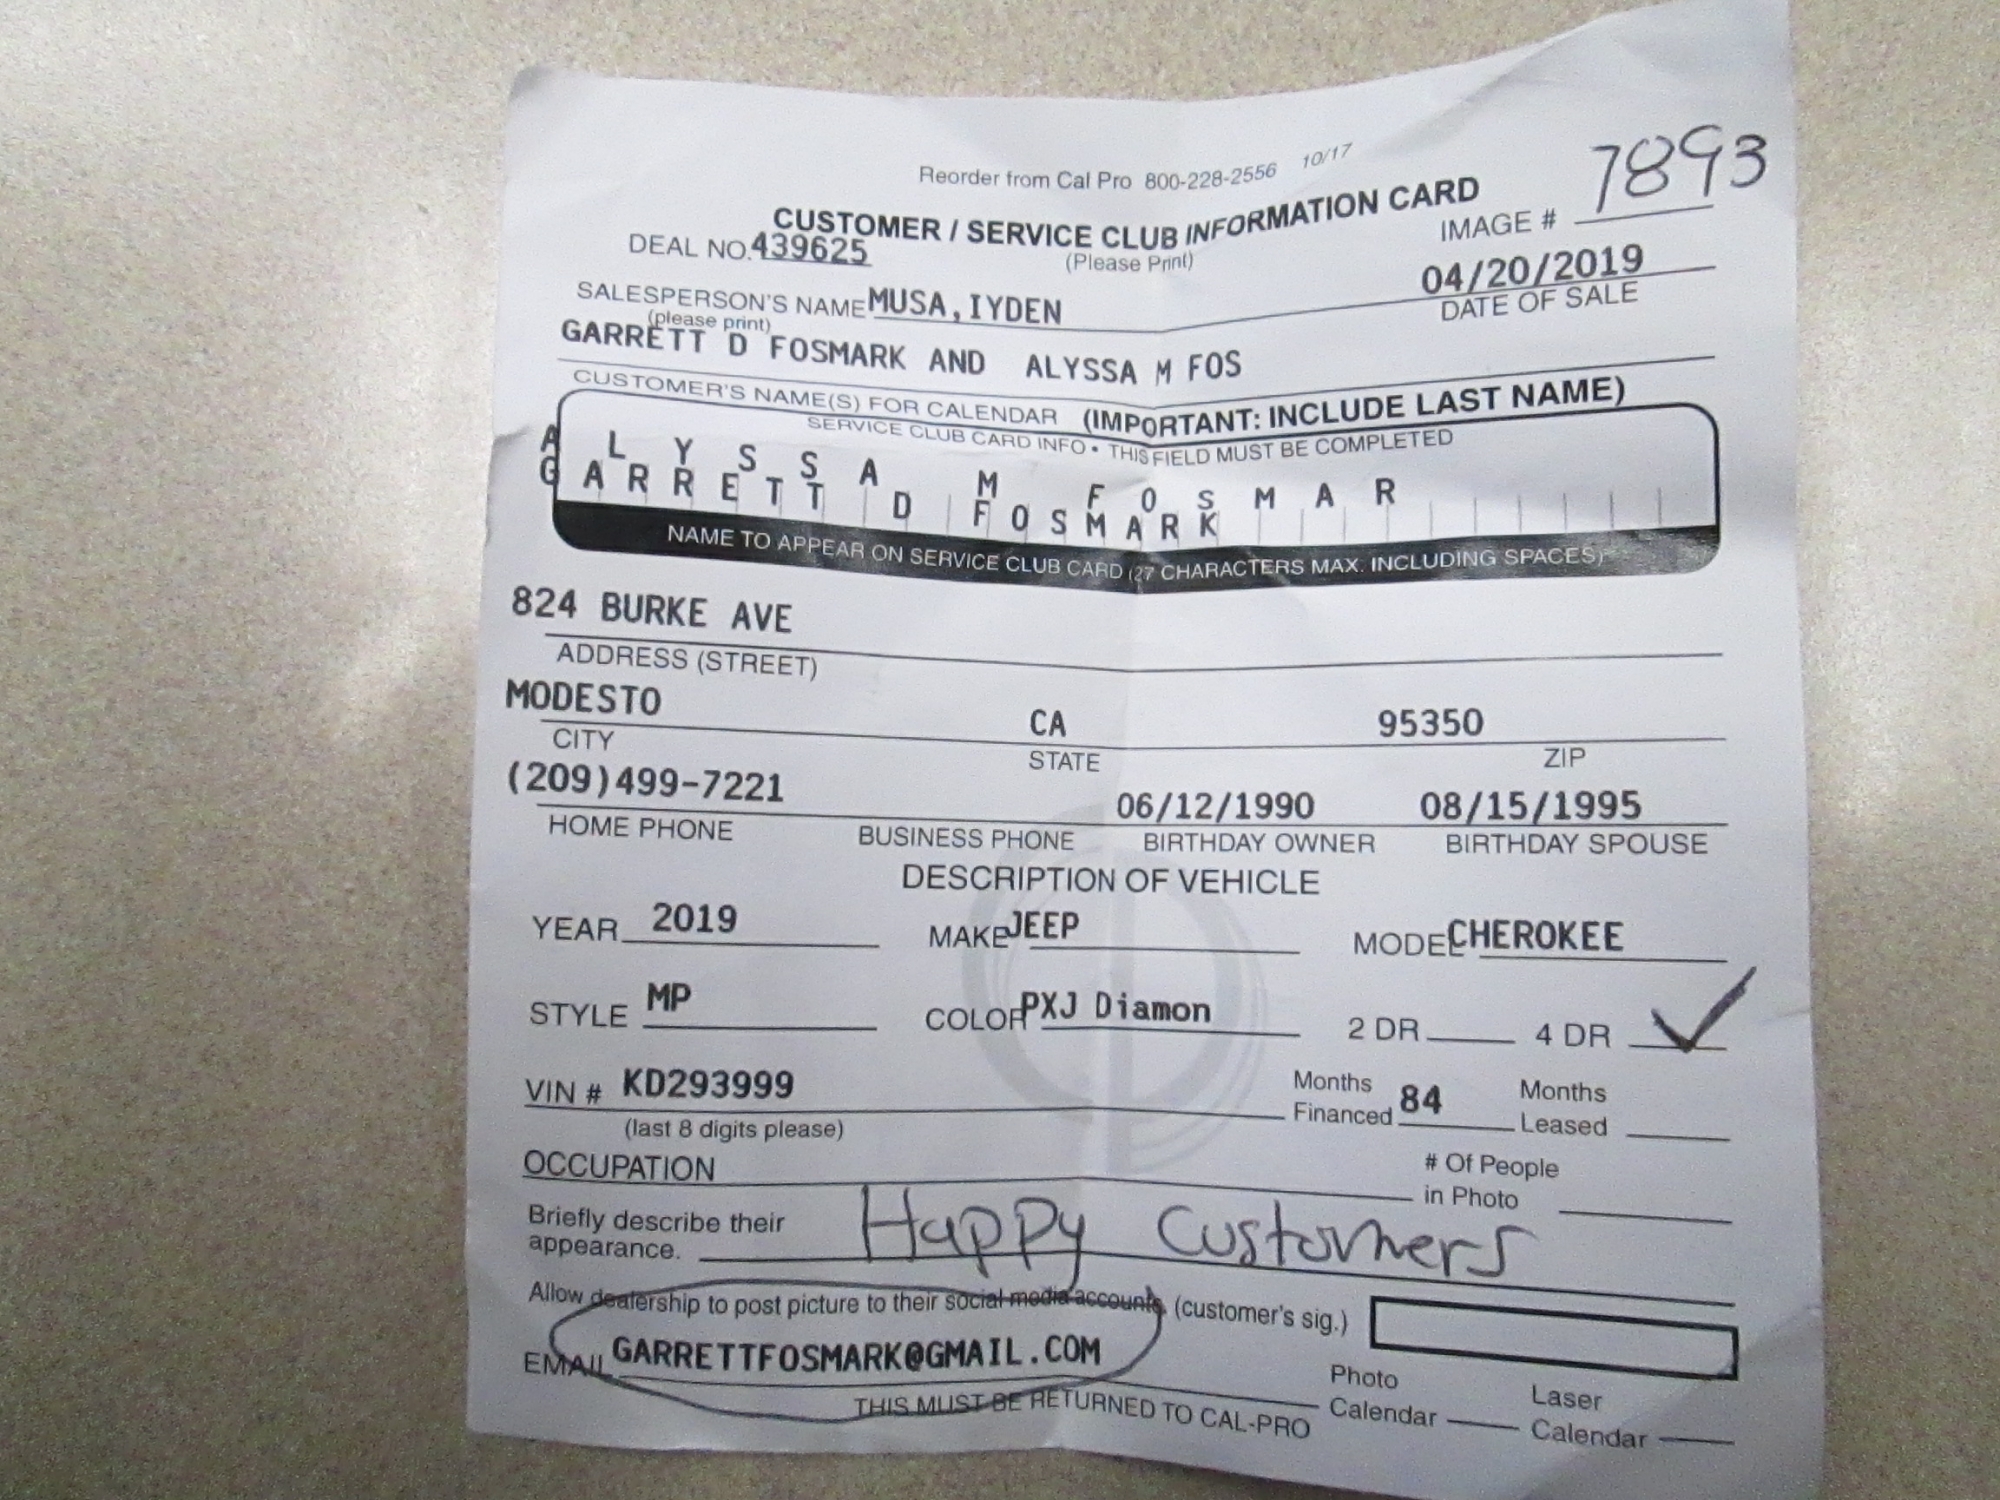 Reorder from Cal Pro 800-228-2556 10/17
7893
CUSTOMER / SERVICE CLUB INFORMATION CARD
IMAGE #
DEAL NO. 439625
(Please Print)
04/20/2019
SALESPERSON'S NAME MUSA, IYDEN
DATE OF SALE
(please print)
GARRETT D FOSMARK AND ALYSSA M FOS
CUSTOMER'S NAME(S) FOR CALENDAR (IMPORTANT: INCLUDE LAST NAME)
SERVICE CLUB CARD INFO • THIS FIELD MUST BE COMPLETED
ALYSSA M FOSMAR
GARRETT D FOSMARK
NAME TO APPEAR ON SERVICE CLUB CARD (27 CHARACTERS MAX. INCLUDING SPACES)
824 BURKE AVE
ADDRESS (STREET)
MODESTO CA 95350
CITY STATE ZIP
(209)499-7221 06/12/1990 08/15/1995
HOME PHONE BUSINESS PHONE BIRTHDAY OWNER BIRTHDAY SPOUSE
DESCRIPTION OF VEHICLE
YEAR 2019 MAKE JEEP MODEL CHEROKEE
STYLE MP COLOR PXJ Diamon 2 DR 4 DR
VIN # KD293999 Months Financed 84 Months Leased
(last 8 digits please)
OCCUPATION # Of People in Photo
Briefly describe their appearance. Happy Customers
Allow dealership to post picture to their social media accounts (customer's sig.)
EMAIL GARRETTFOSMARK@GMAIL.COM
THIS MUST BE RETURNED TO CAL-PRO
Photo Calendar Laser Calendar